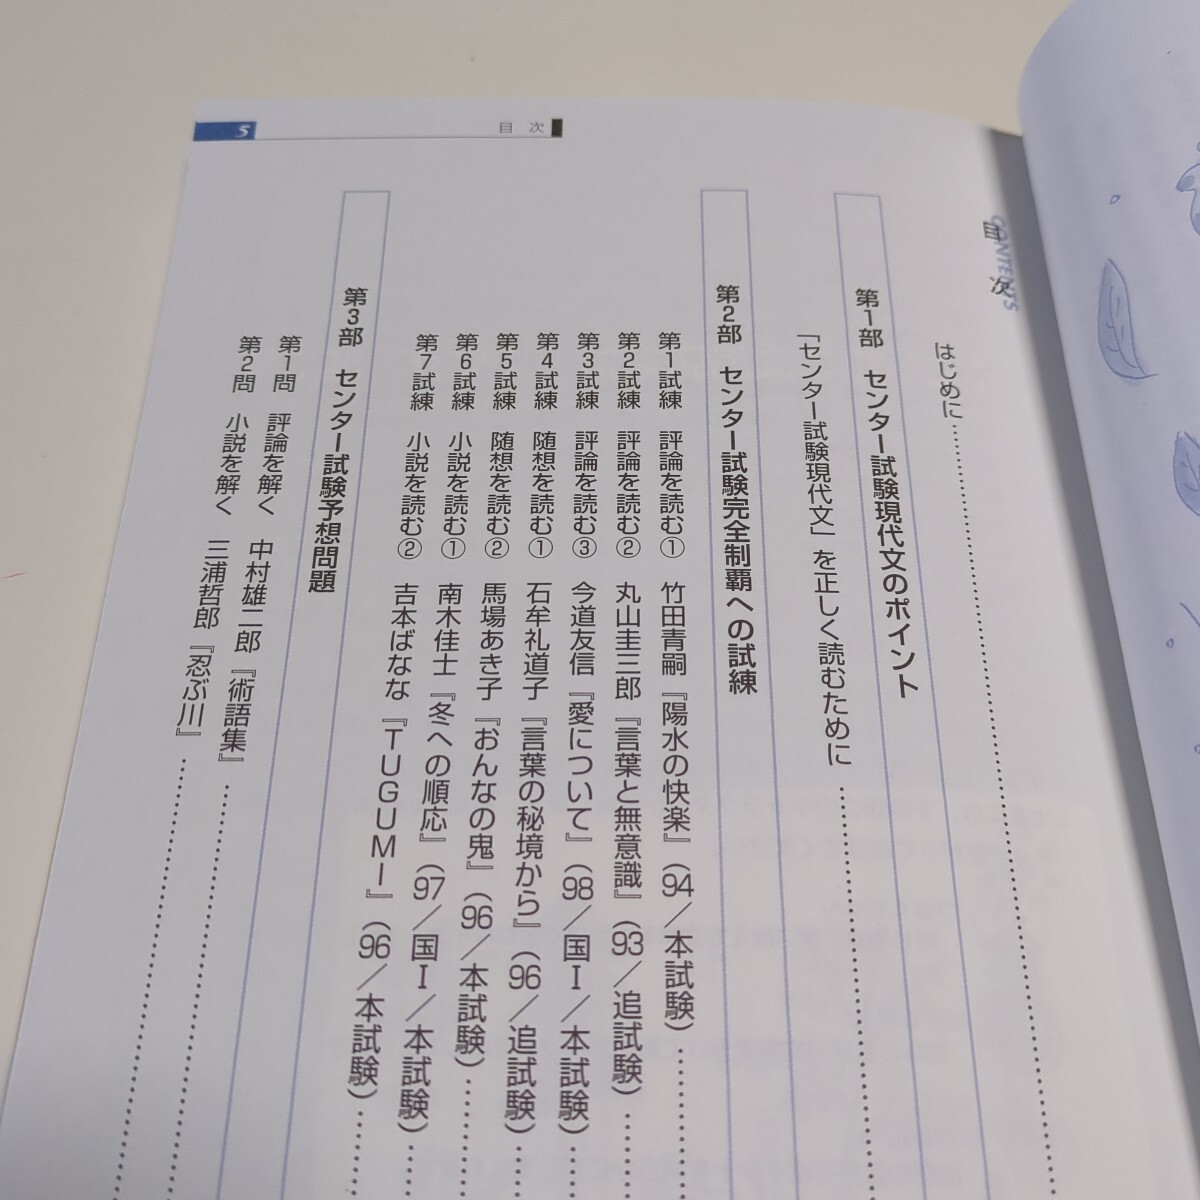 5
目次
CONTENTS
目次
はじめに
第1部 センター試験現代文のポイント
「センター試験現代文」を正しく読むために
第2部 センター試験完全制覇への試練
第1試練 評論を読む① 竹田青嗣『陽水の快楽』(94/本試験)
第2試練 評論を読む② 丸山圭三郎『言葉と無意識』(93/追試験)
第3試練 評論を読む③ 今道友信『愛について』(98/国Ⅰ/本試験)
第4試練 随想を読む① 石牟礼道子『言葉の秘境から』(96/追試験)
第5試練 随想を読む② 馬場あき子『おんなの鬼』(96/本試験)
第6試練 小説を読む① 南木佳士『冬への順応』(97/国Ⅰ/本試験)
第7試練 小説を読む② 吉本ばなな『TUGUMI』(96/本試験)
第3部 センター試験予想問題
第1問 評論を解く 中村雄二郎『術語集』
第2問 小説を解く 三浦哲郎『忍ぶ川』